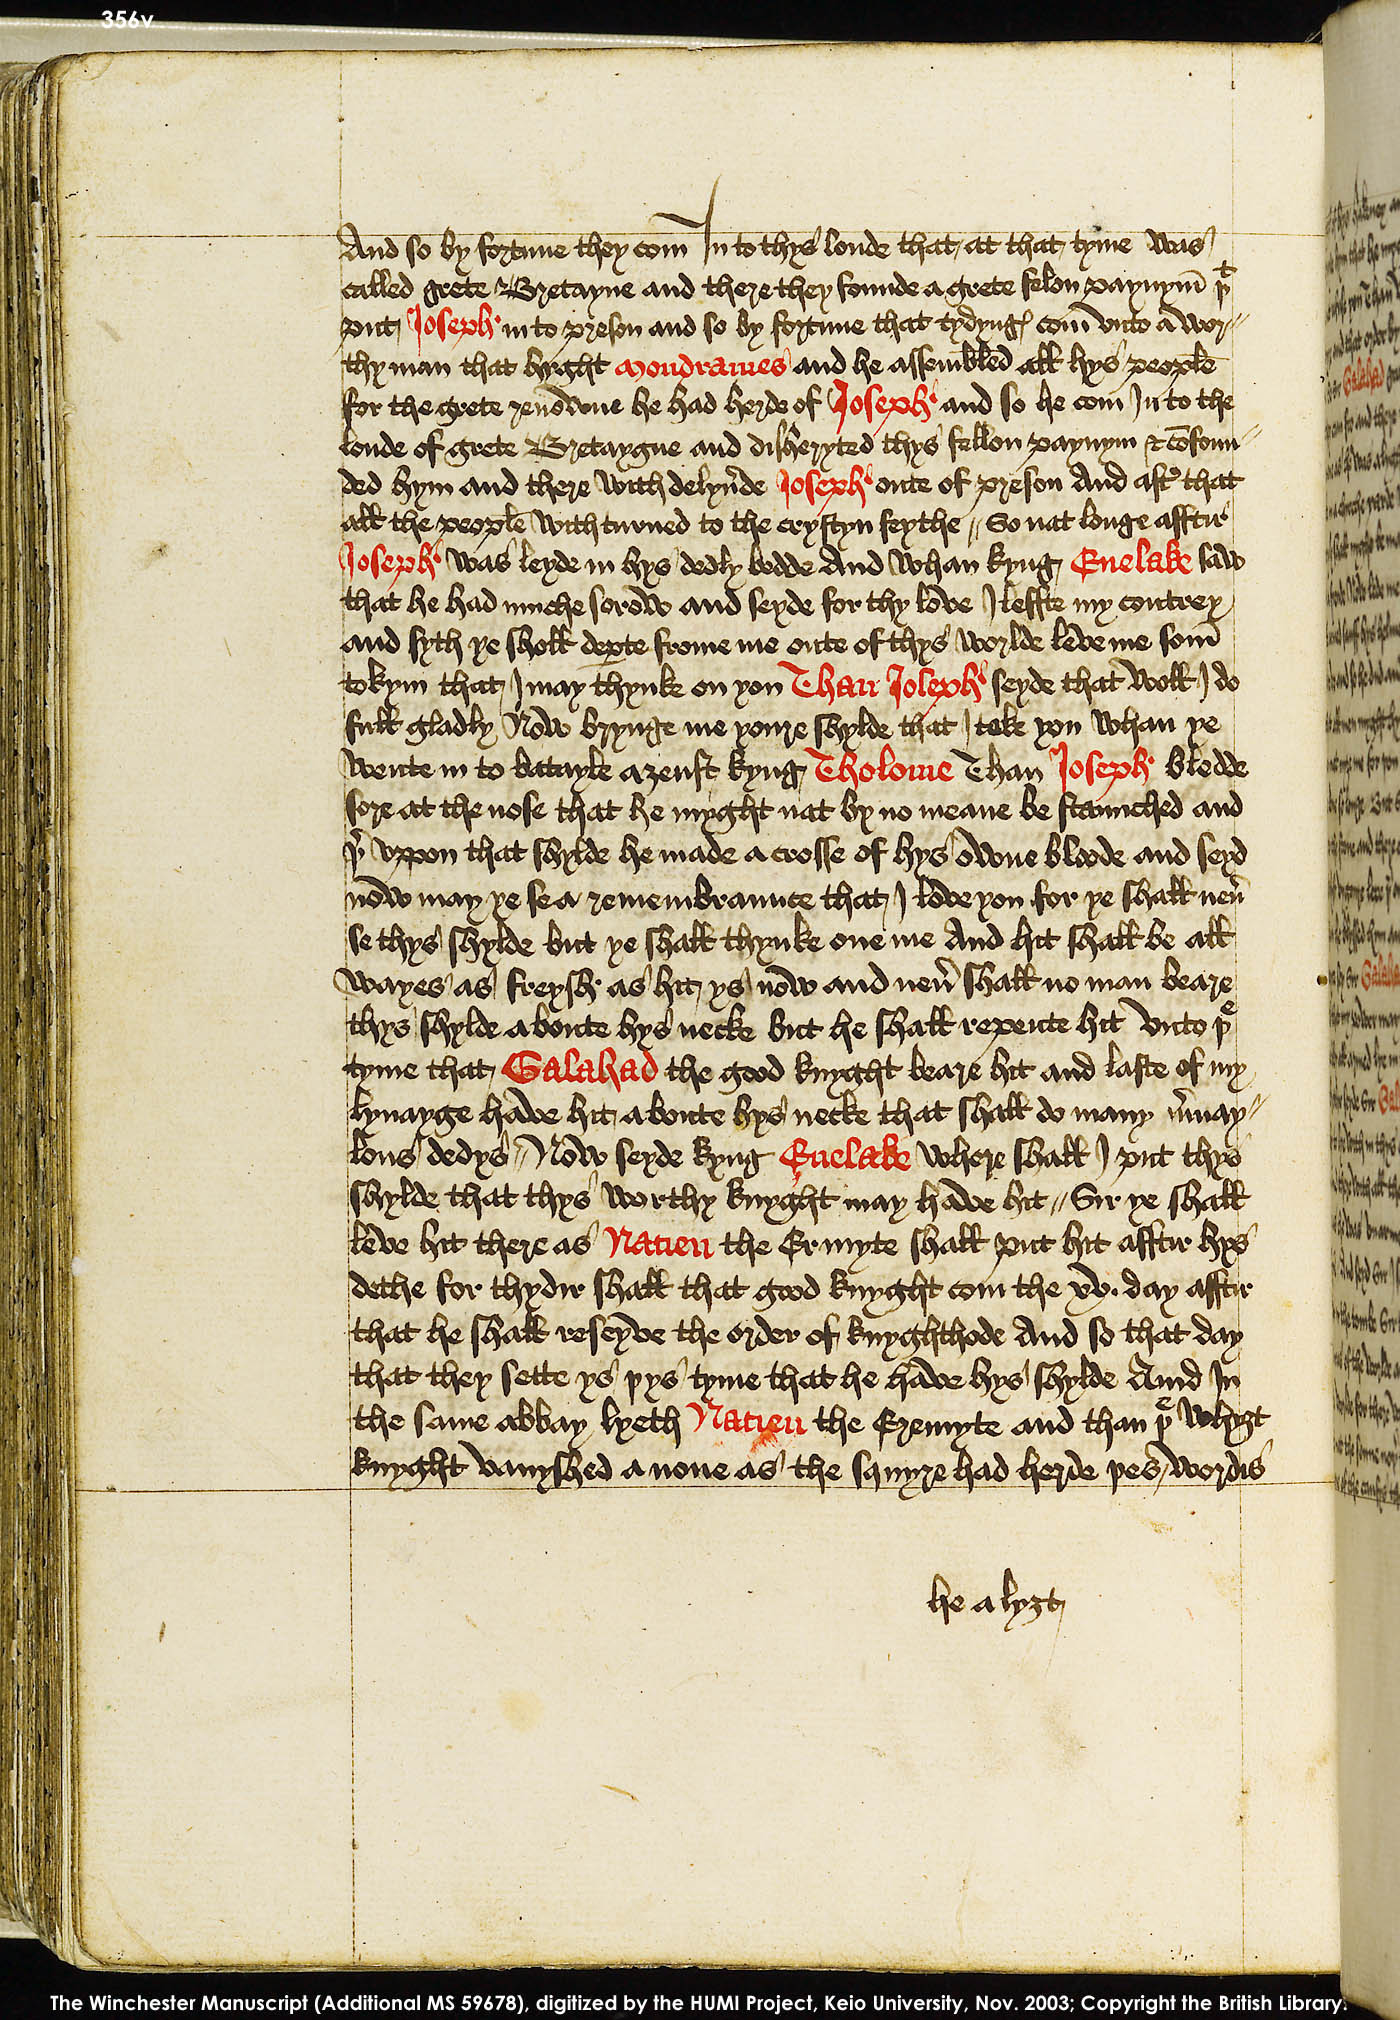 356v
And so by fortune they com In to thys londe that at that tyme was
called grete Bretayne and there they founde a grete felon paynym̄ þᵗ
put Joseph in to preson and so by fortune that tydyngꝭ com̄ vnto a wor⸗
thy man that hyght Mondrames and he assembled all hys people
for the grete renowne he had herde of Joseph and so he com In to the
londe of grete Bretaygne and disheryted thys fellon paynym & cōfoun⸗
ded hym and there with delyůde Joseph oute of preson And aftˀ that
all the people with turned to the crystyn feythe // So nat longe afftir
Joseph was leyde in hys dedly bedde And whan kyng Euelake saw
that he had muche sorow and seyde for thy love I leffte my contrey
and syth ye shall deꝑte frome me oute of thys worlde leve me som̄
tokyn that I may thynke on you Than Joseph seyde that woll I do
full gladly Now brynge me youre shylde that I toke you whan ye
wente in to batayle aȝenst kyng Tholome Than Joseph bledde
sore at the nose that he myght nat by no meane be staunched and
þˀ vppon that shylde he made a crosse of hys owne bloode and seyd
now may ye se a remembraunce that I love you for ye shall neů
se thys shylde but ye shall thynke one me And hit shall be all
wayes as freysh as hit ys now and neů shall no man beare
thys shylde aboute hys necke but he shall repente hit vnto þᵉ
tyme that Galahad the good knyght beare hit and laste of my
lynayge have hit aboute hys necke that shall do many ůmay⸗
lous dedys // Now seyde kyng Euelake where shall I put thys
shylde that thys worthy knyght may have hit // Sir ye shall
leve hit there as Nacien the Ermyte shall put hit afftir hys
dethe for thydir shall that good knyght com the xv. day afftir
that he shall reseyve the order of knyghthode And so that day
that they sette ys þys tyme that he have hys shylde And In
the same abbay lyeth Nacien the Eremyte and than þᵉ whyȝt
knyght vanyshed anone as the squyre had herde þes wordis
he alyȝt
The Winchester Manuscript (Additional MS 59678), digitized by the HUMI Project, Keio University, Nov. 2003; Copyright the British Library.